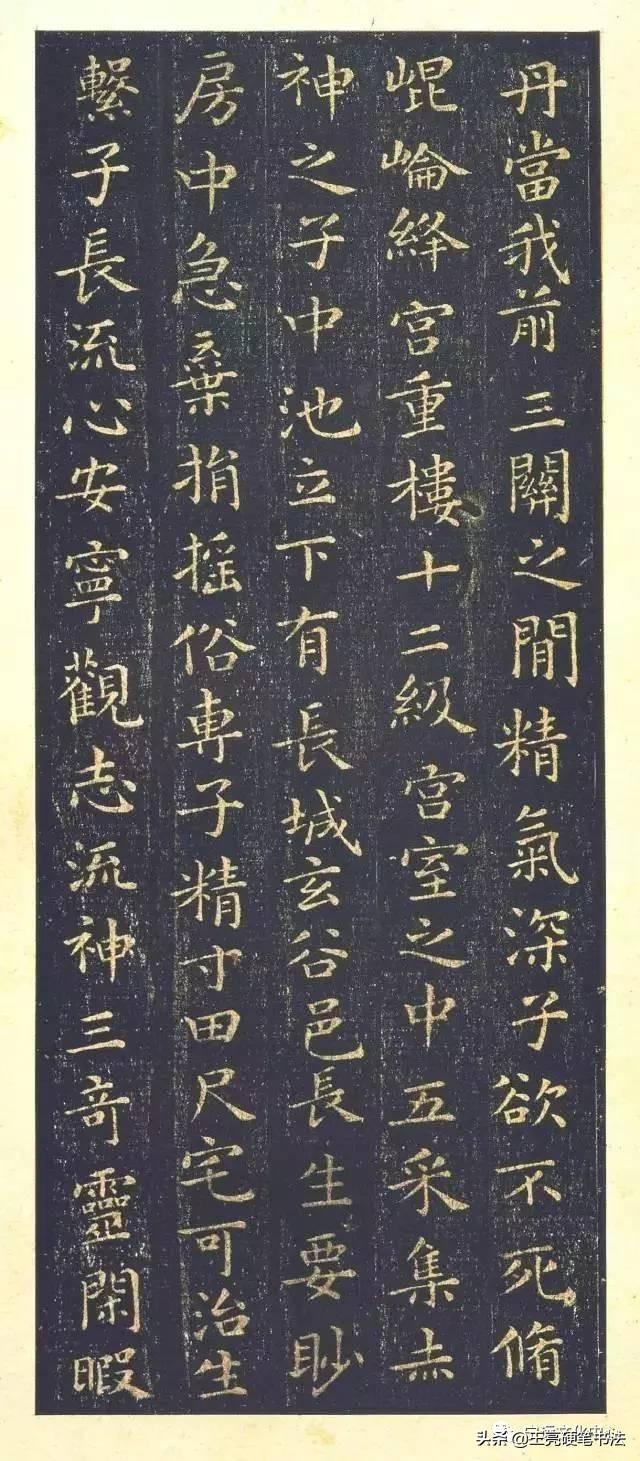 丹當我前三關之間精氣深子欲不死脩
崐崘絳宮重樓十二級宮室之中五采集赤
神之子中池立下有長城玄谷邑長生要眇
房中急棄捐摇俗専子精寸田尺宅可治生
繫子長流心安寧觀志流神三竒靈閑暇
头条@王亮硬笔书法